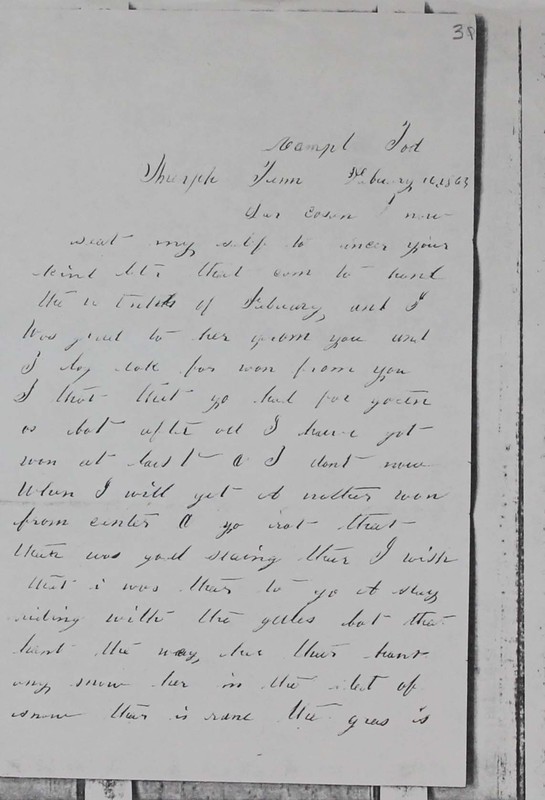 38
Campt Tod
Murph Tenn Febuary 16, 1863
Der cosen I now
seat my self to incer your
kind let that com to hand
the of Febuary, and I
Was glad to her from you and
I log for won from you
I that that yo had for goten
os bot after all I have got
won at last I dont now
When I will get A nother won
from center yo rot that
thar was good slaing thar I wish
that i was thar to go A slay
riding with the galles bot that
hant the way, her thar hant
any snow her in the sted of
snow thar is rane the gras is